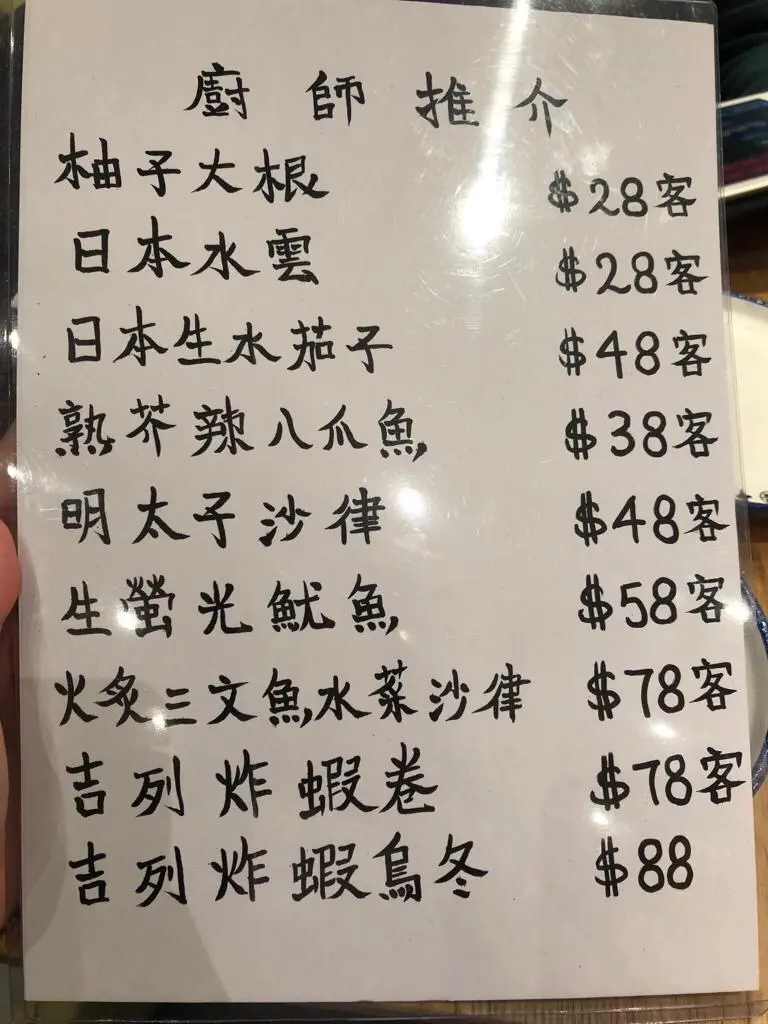 廚師推介
柚子大根 $28客
日本水雲 $28客
日本生水茄子 $48客
熟芥辣八爪魚 $38客
明太子沙律 $48客
生螢光魷魚 $58客
火炙三文魚水菜沙律 $78客
吉列炸蝦卷 $78客
吉列炸蝦烏冬 $88